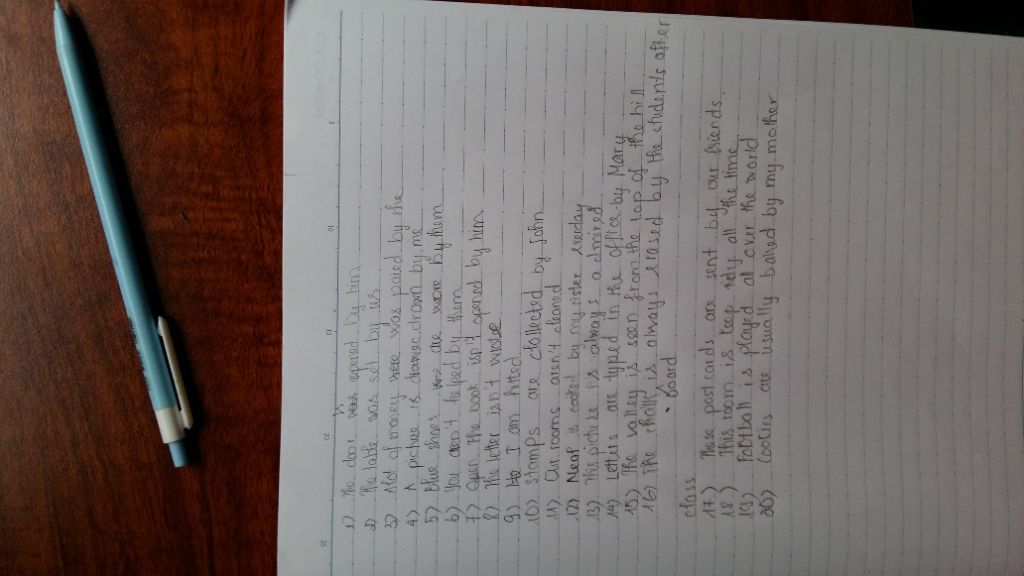 1) The door is opened by him
2) The table was set by us
3) A lot of money was paired by the
4) A picture is drawn by me
5) Blue shoes are wore by them
6) You aren't helped by them
7) Open the book isn't opened by him
8) The letter isn't wrote
9) I am hitted
10) Stamps are collected by John
11) Our rooms aren't cleaned
12) Meat is cooked by my sister everyday
13) This picture is always a admired
14) Letters are typed in the office by Mary
15) The valley is seen from the top of the hill
16) The chally is always erased by the students after
• board
class
17) These postcards are sent by our friends.
18) This room is keep tidy all the time
19) Football is played al over the world
20) Cookis are usually baked by my mother